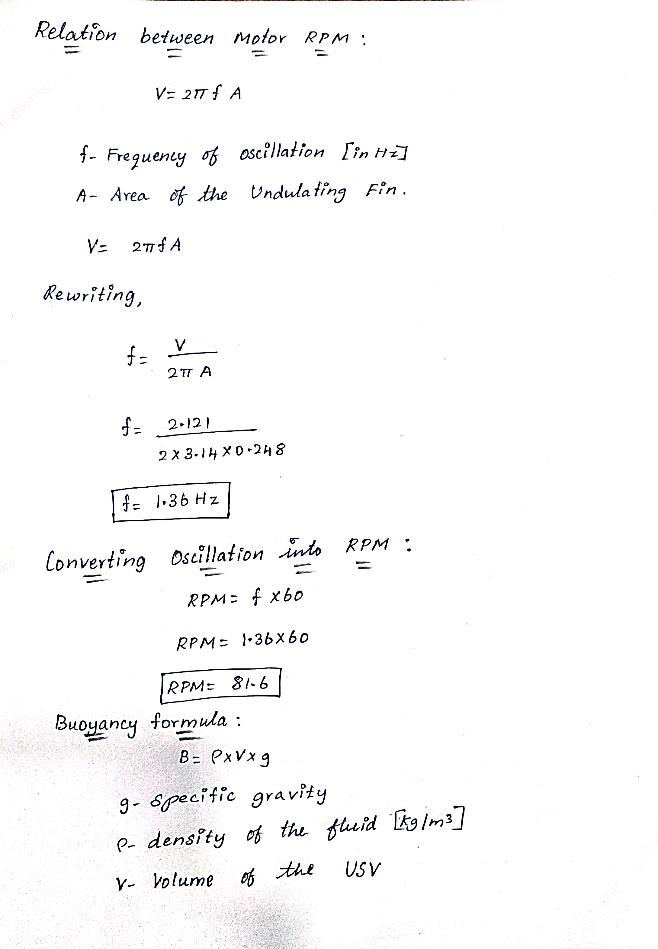 Relation between Motor RPM :
V= 2π f A
f- Frequency of oscillation [in Hz]
A- Area of the Undulating Fin.
V= 2πfA
Rewriting,
f= V
2π A
f= 2.121
2x3.14x0.248
f= 1.36 Hz
Converting Oscillation into RPM :
RPM= f x60
RPM= 1.36x60
RPM= 81.6
Buoyancy formula :
B= ρxVxg
g- Specific gravity
ρ- density of the fluid [kg/m³]
V- Volume of the USV